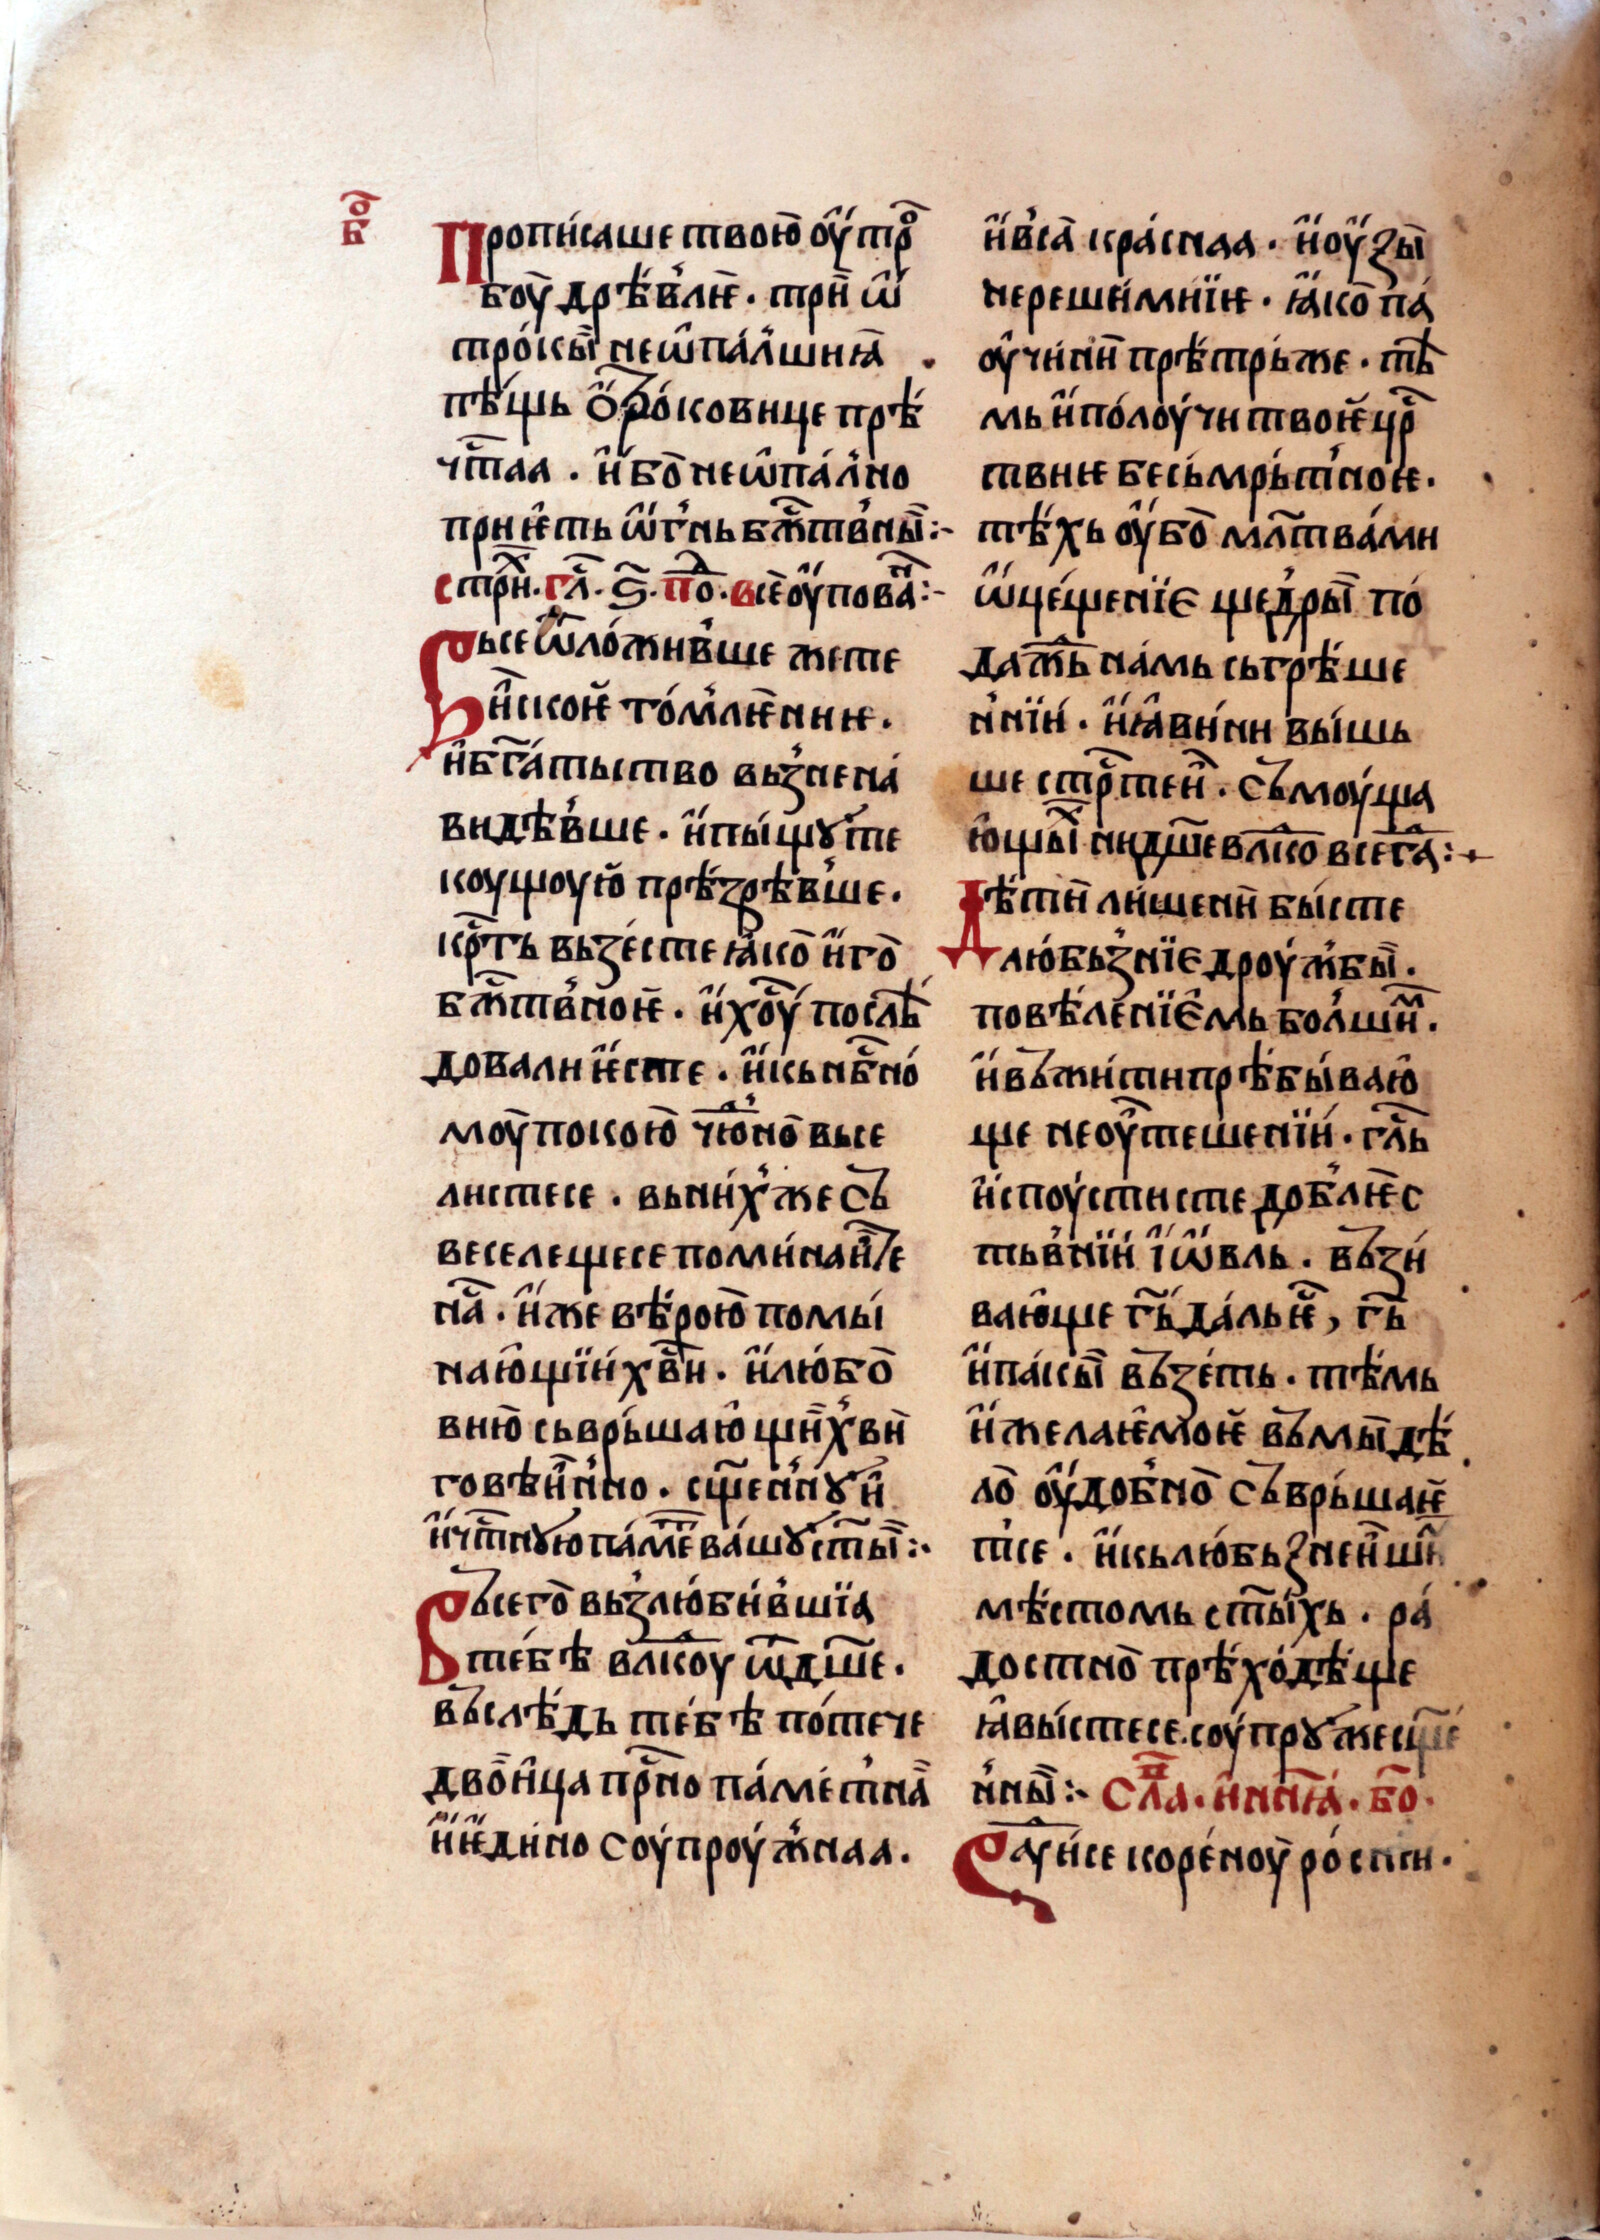 бо҃
Прописаше твою̀ оу҆тро́
боу̀ дрѣ́влѥ̀ · трѝи ѡ҆
тро́кы̏ не ѡ҆па́лшиꙗ̀ .
пѣ́щь ѻ҆троковице прѣ
чт҃аа · и҆бо̀ не ѡ҆па́лно
приѥ҆ть ѡ҆́гнь бж҃тв́ны̏:-
стрⷯи · гл҃ · ѕ҃ · поⷣ · все̏ оу҆пова́ⷩ:-
Вьсе ѿло́живше жете
и҆скоѥ̀ то́млѥ̀ниѥ ·
и҆ бг҃а́тьство вьзнена́
видѣ́вше · и҆ пы́щꙋ те
коущоую̀ прѣ́зрѣ́вше ·
крⷭ҇ть вьзе́сте ꙗ҆ко̀ и҆го̀
бж҃твноѥ̀ · и҆ хⷭ҇оу́ послѣ́
довали ѥ҆сте · и҆ кь нбⷭ҇но́
моу̀ покою̀ чю́⁠ⷣно̀ высе
листесе · вьни́х же съ
веселещесе поминаи҆те
на́ⷭ · и҆же вѣ́рою̀ помы́
наю҆щїи́хⷭ҇ ви · и҆ лю́бо̀
вию̀ сьврьшаю҆щѝих вѝ
говѣ́и҆нно · сщ҃еннꙋ и҆
и҆ чт҃нꙋю па́меⷮ ва́шꙋ ст҃ы̏:·
Въсего̀ вьзлю́би́вшїа
тебѣ вⷧⷣкоу ѿ дш҃е ·
въслѣ́дь тебѣ по́тече
двои҆ца прⷭ҇но па́метна̀
и҆ ѥ҆ди́но соупроу́жнаа ·
и҆ вса̀ кра́снаа · и҆ оу҆зы̏
нерешимнїѥ · ꙗ҆ко̀ па́
оу҆чи́нѝ прѣ́трьже · тѣ́
мь и҆ по́лоучи твоѥ̀ црⷭ҇
твиѥ бесьмрь́тноѥ ·
тѣ́хь оу҆бо̀ млт҃ва́ми
ѡ҆це́щенїѥ ще́дры̏ по́
да́ждь на́мь сьгрѣ́ше
ннїи́ · и҆ ꙗ҆ви́ни вы́шь
ше стрⷭ҇теи̏ · съмоу́ща
ю҆щы̏ⷯ ни дш҃е влⷣко всегⷣа̀:+
Дѣ́тѝ ли́шенѝ бы́сте
лю́бьзнїѥ дроу́жбы̏ ·
повѣ́ле́нїѥмь болши́ⷨ ·
и҆ въ жи́ти прѣ́бы́ваю҆
ще неоу҆тешенїи́ · гл҃ь
и҆споу́стисте доблѥ̀с
тьвнїи́ і҆ѡ҆вль · възи́
ваю҆ще гь҃ да́ль ѥ҆̀, гь҃
и҆ па́кы̏ възе́ть · тѣ́мь
и҆ желаѥ҆моѥ̀ въ мы̏ дѣ́
ло̀ оу҆добно̀ съврьшаѥ̀
тсе · и҆ кь лю́бьзнеи҆ши́
мѣ́стомь ст҃ы́хь · ра́
достно̀ прѣ́хо́дѣ́ще
ꙗ҆вы́стесе. соупрꙋ́же сщ҃е
нны̏:· Сла́ⷡ · и҆ ннꙗ̀ · бо҃ ·
Саⷣи́се коре́ноу̀ ро́снѝ ·